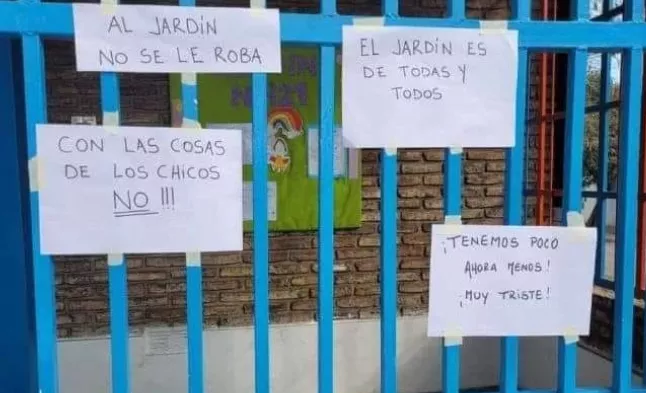 AL JARDÍN
NO SE LE ROBA
EL JARDÍN ES
DE TODAS Y
TODOS
CON LAS COSAS
DE LOS CHICOS
NO!!!
¡TENEMOS POCO
AHORA MENOS!
¡MUY TRISTE!